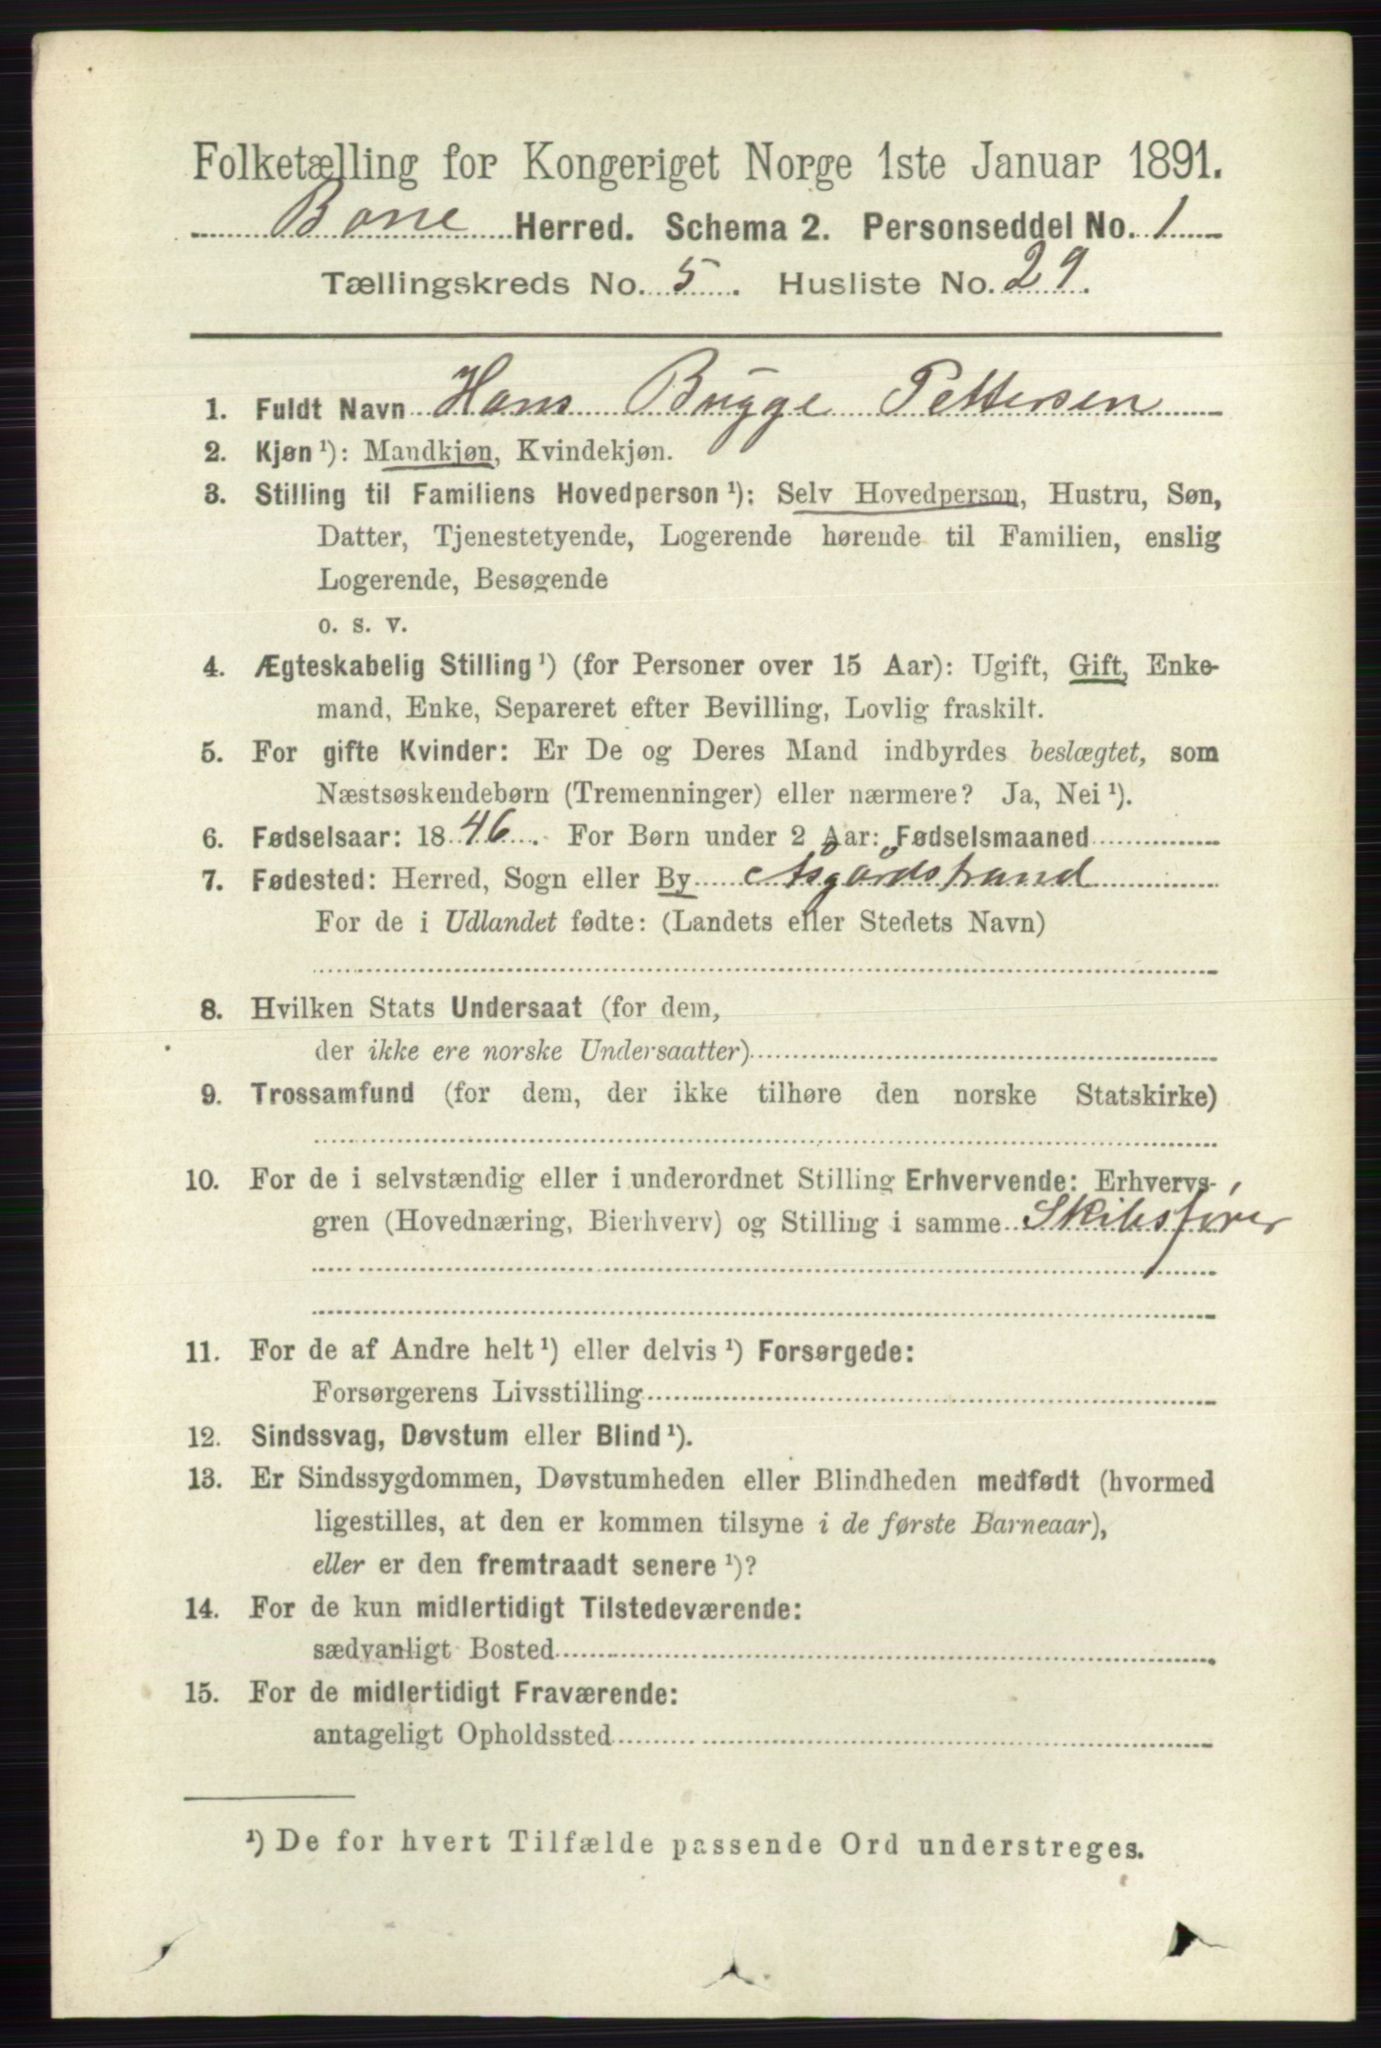 Folketælling for Kongeriget Norge 1ste Januar 1891.
Borre Herred. Schema 2. Personseddel No. 1
Tællingskreds No. 5. Husliste No. 29.
1. Fuldt Navn Hans Bugge Pettersen
2. Kjøn ¹): Mandkjøn, Kvindekjøn.
3. Stilling til Familiens Hovedperson ¹): Selv Hovedperson, Hustru, Søn,
Datter, Tjenestetyende, Logerende hørende til Familien, enslig
Logerende, Besøgende
o. s. v.
4. Ægteskabelig Stilling ¹) (for Personer over 15 Aar): Ugift, Gift, Enke-
mand, Enke, Separeret efter Bevilling, Lovlig fraskilt.
5. For gifte Kvinder: Er De og Deres Mand indbyrdes beslægtet, som
Næstsøskendebørn (Tremenninger) eller nærmere? Ja, Nei ¹).
6. Fødselsaar: 1846. For Børn under 2 Aar: Fødselsmaaned
7. Fødested: Herred, Sogn eller By Åsgårdstrand
For de i Udlandet fødte: (Landets eller Stedets Navn)
8. Hvilken Stats Undersaat (for dem,
der ikke ere norske Undersaatter)
9. Trossamfund (for dem, der ikke tilhøre den norske Statskirke)
10. For de i selvstændig eller i underordnet Stilling Erhvervende: Erhvervs-
gren (Hovednæring, Bierhverv) og Stilling i samme Skibsfører
11. For de af Andre helt ¹) eller delvis ¹) Forsørgede:
Forsørgerens Livsstilling
12. Sindssvag, Døvstum eller Blind ¹).
13. Er Sindssygdommen, Døvstumheden eller Blindheden medfødt (hvormed
ligestilles, at den er kommen tilsyne i de første Barneaar),
eller er den fremtraadt senere ¹)?
14. For de kun midlertidigt Tilstedeværende:
sædvanligt Bosted
15. For de midlertidigt Fraværende:
antageligt Opholdssted
¹) De for hvert Tilfælde passende Ord understreges.